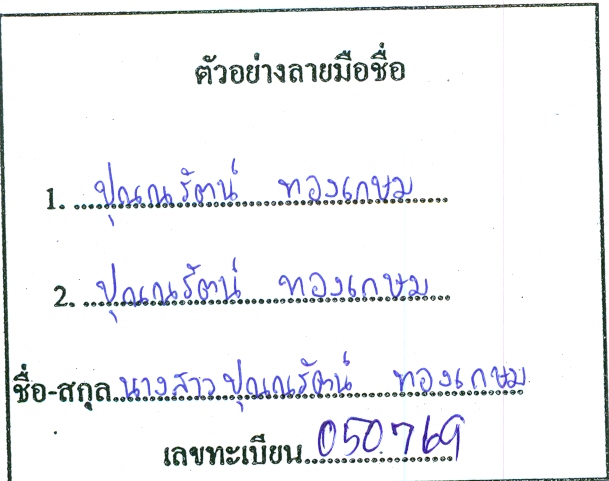 ตัวอย่างลายมือชื่อ
1. ปุณณรัตน์ ทองเกษม
2. ปุณณรัตน์ ทองเกษม
ชื่อ-สกุล นางสาวปุณณรัตน์ ทองเกษม
เลขทะเบียน 050769